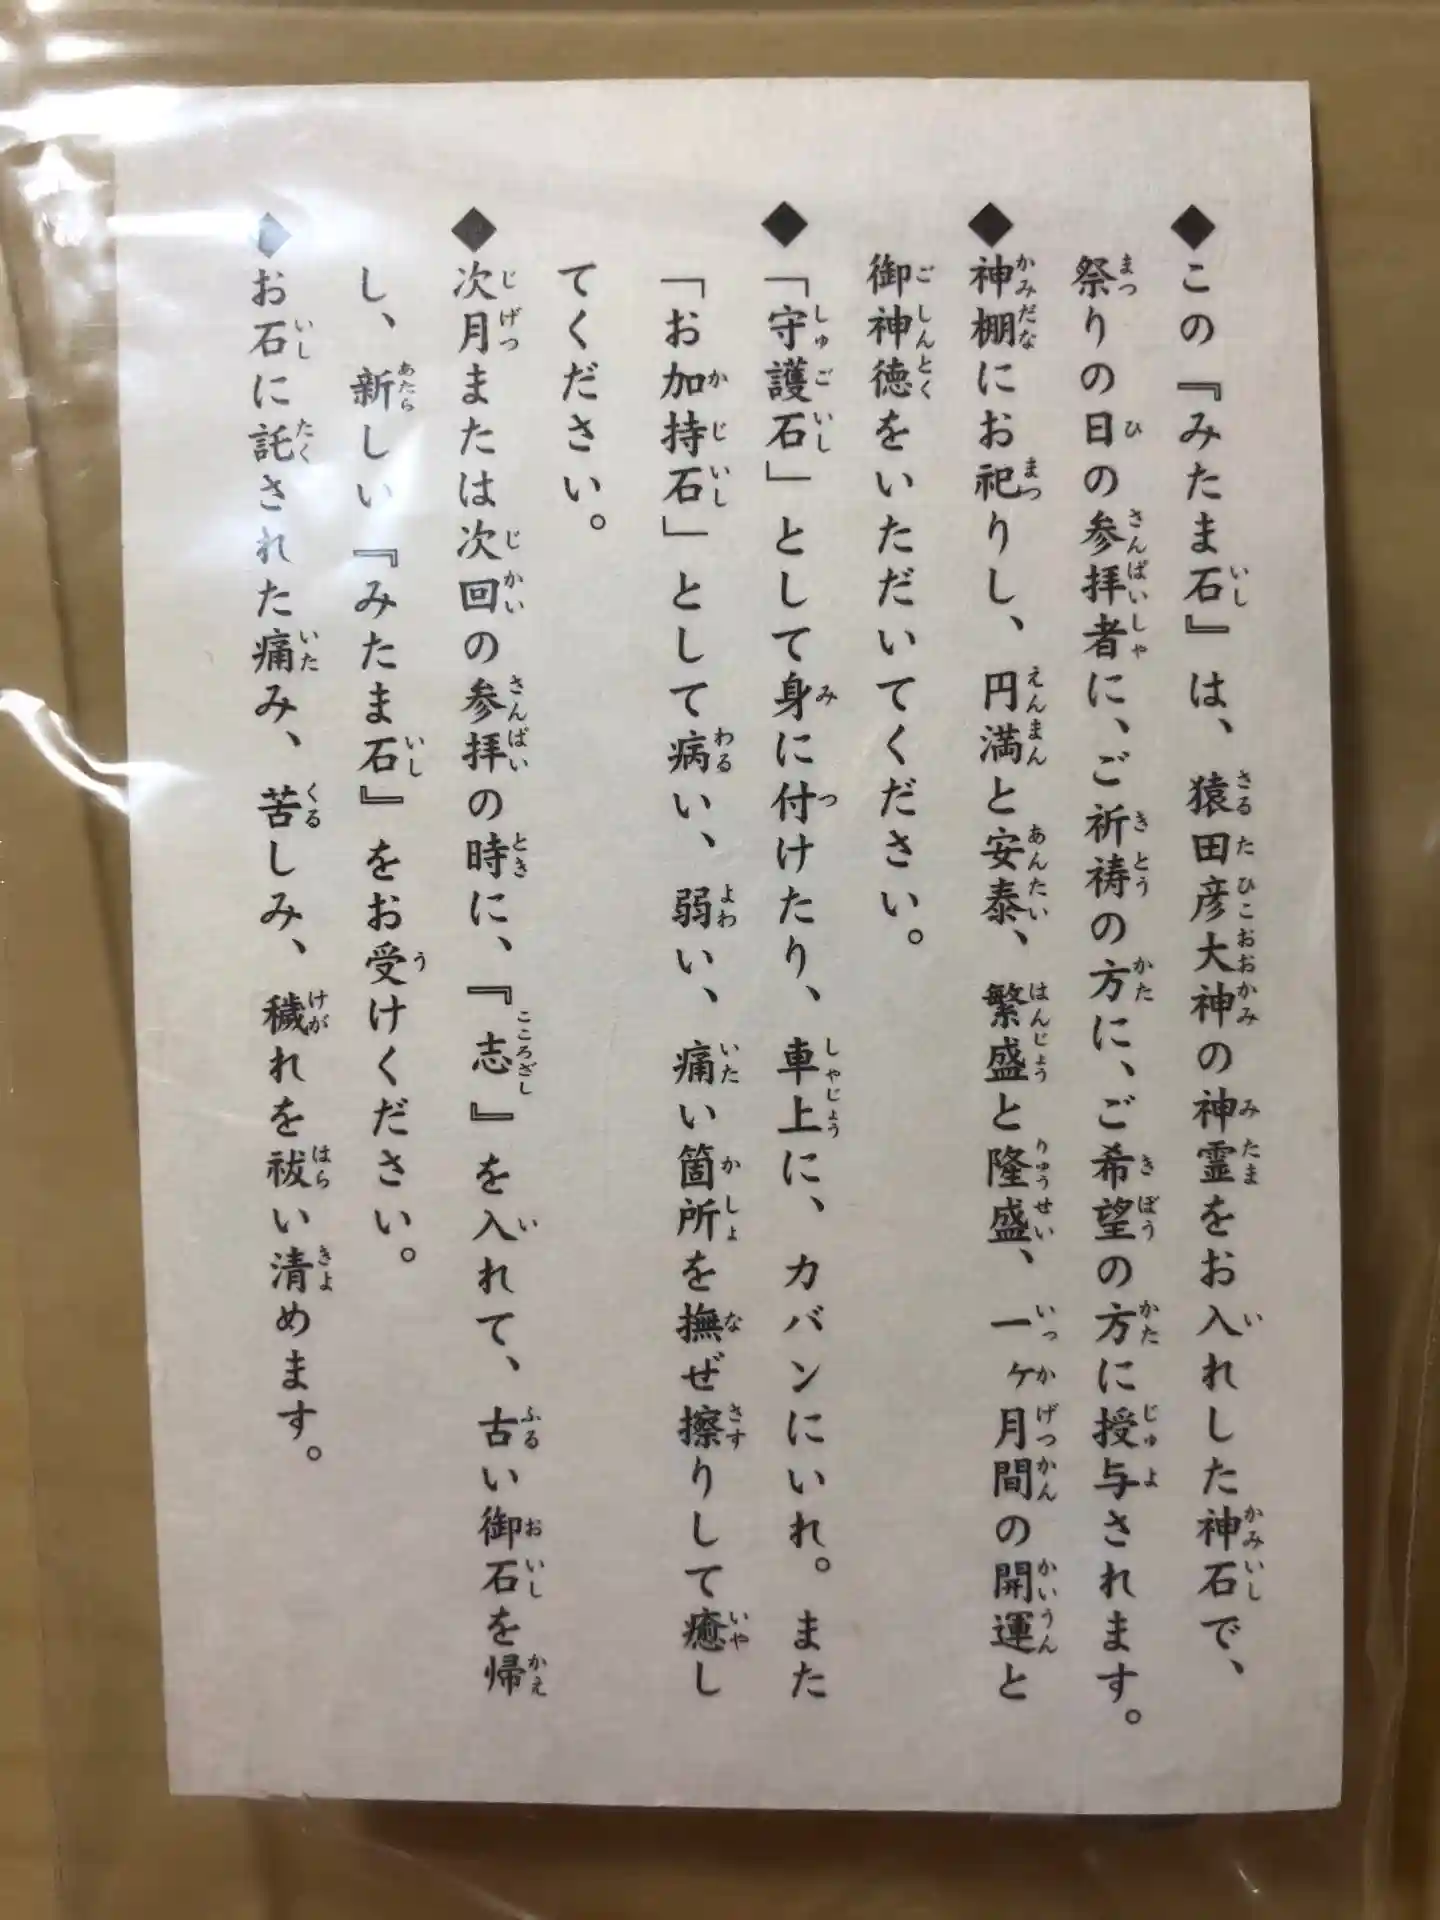 ◆この『みたま石』は、猿田彦大神の神霊をお入れした神石で、
祭りの日の参拝者に、ご祈祷の方に、ご希望の方に授与されます。
◆神棚にお祀りし、円満と安泰、繁盛と隆盛、一ヶ月間の開運と
御神徳をいただいてください。
◆「守護石」として身に付けたり、車上に、カバンにいれ。また
「お加持石」として病い、弱い、痛い箇所を撫ぜ擦りして癒し
てください。
◆次月または次回の参拝の時に、『志』を入れて、古い御石を帰
し、新しい『みたま石』をお受けください。
◆お石に託された痛み、苦しみ、穢れを祓い清めます。